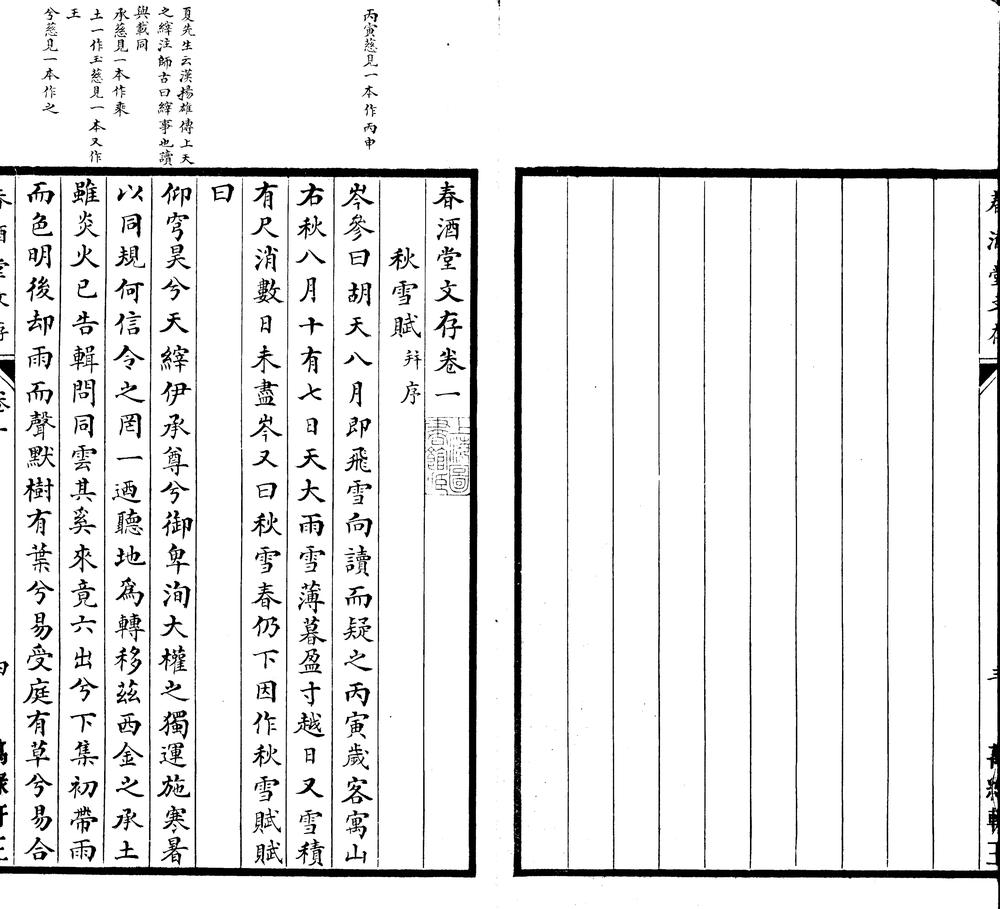 春酒堂文存卷一
秋雪賦幷序
岑參曰胡天八月即飛雪向讀而疑之丙寅歲客寓山
右秋八月十有七日天大雨雪薄暮盈寸越日又雪積
有尺消數日未盡岑又曰秋雪春仍下因作秋雪賦賦
曰
仰穹昊兮天縡伊承尊兮御卑洵大權之獨運施寒暑
以同規何信令之罔一迺聽地爲轉移茲西金之承土
雖炎火已告輯問同雲其奚來竟六出兮下集初帶雨
而色明後却雨而聲默樹有葉兮易受庭有草兮易合
丙寅慈見一本作丙申
夏先生云漢揚雄傳上天
之縡注師古曰縡事也讀
與載同
承慈見一本作乘
土一作玉慈見一本又作
王
兮慈見一本作之
上海圖書館藏